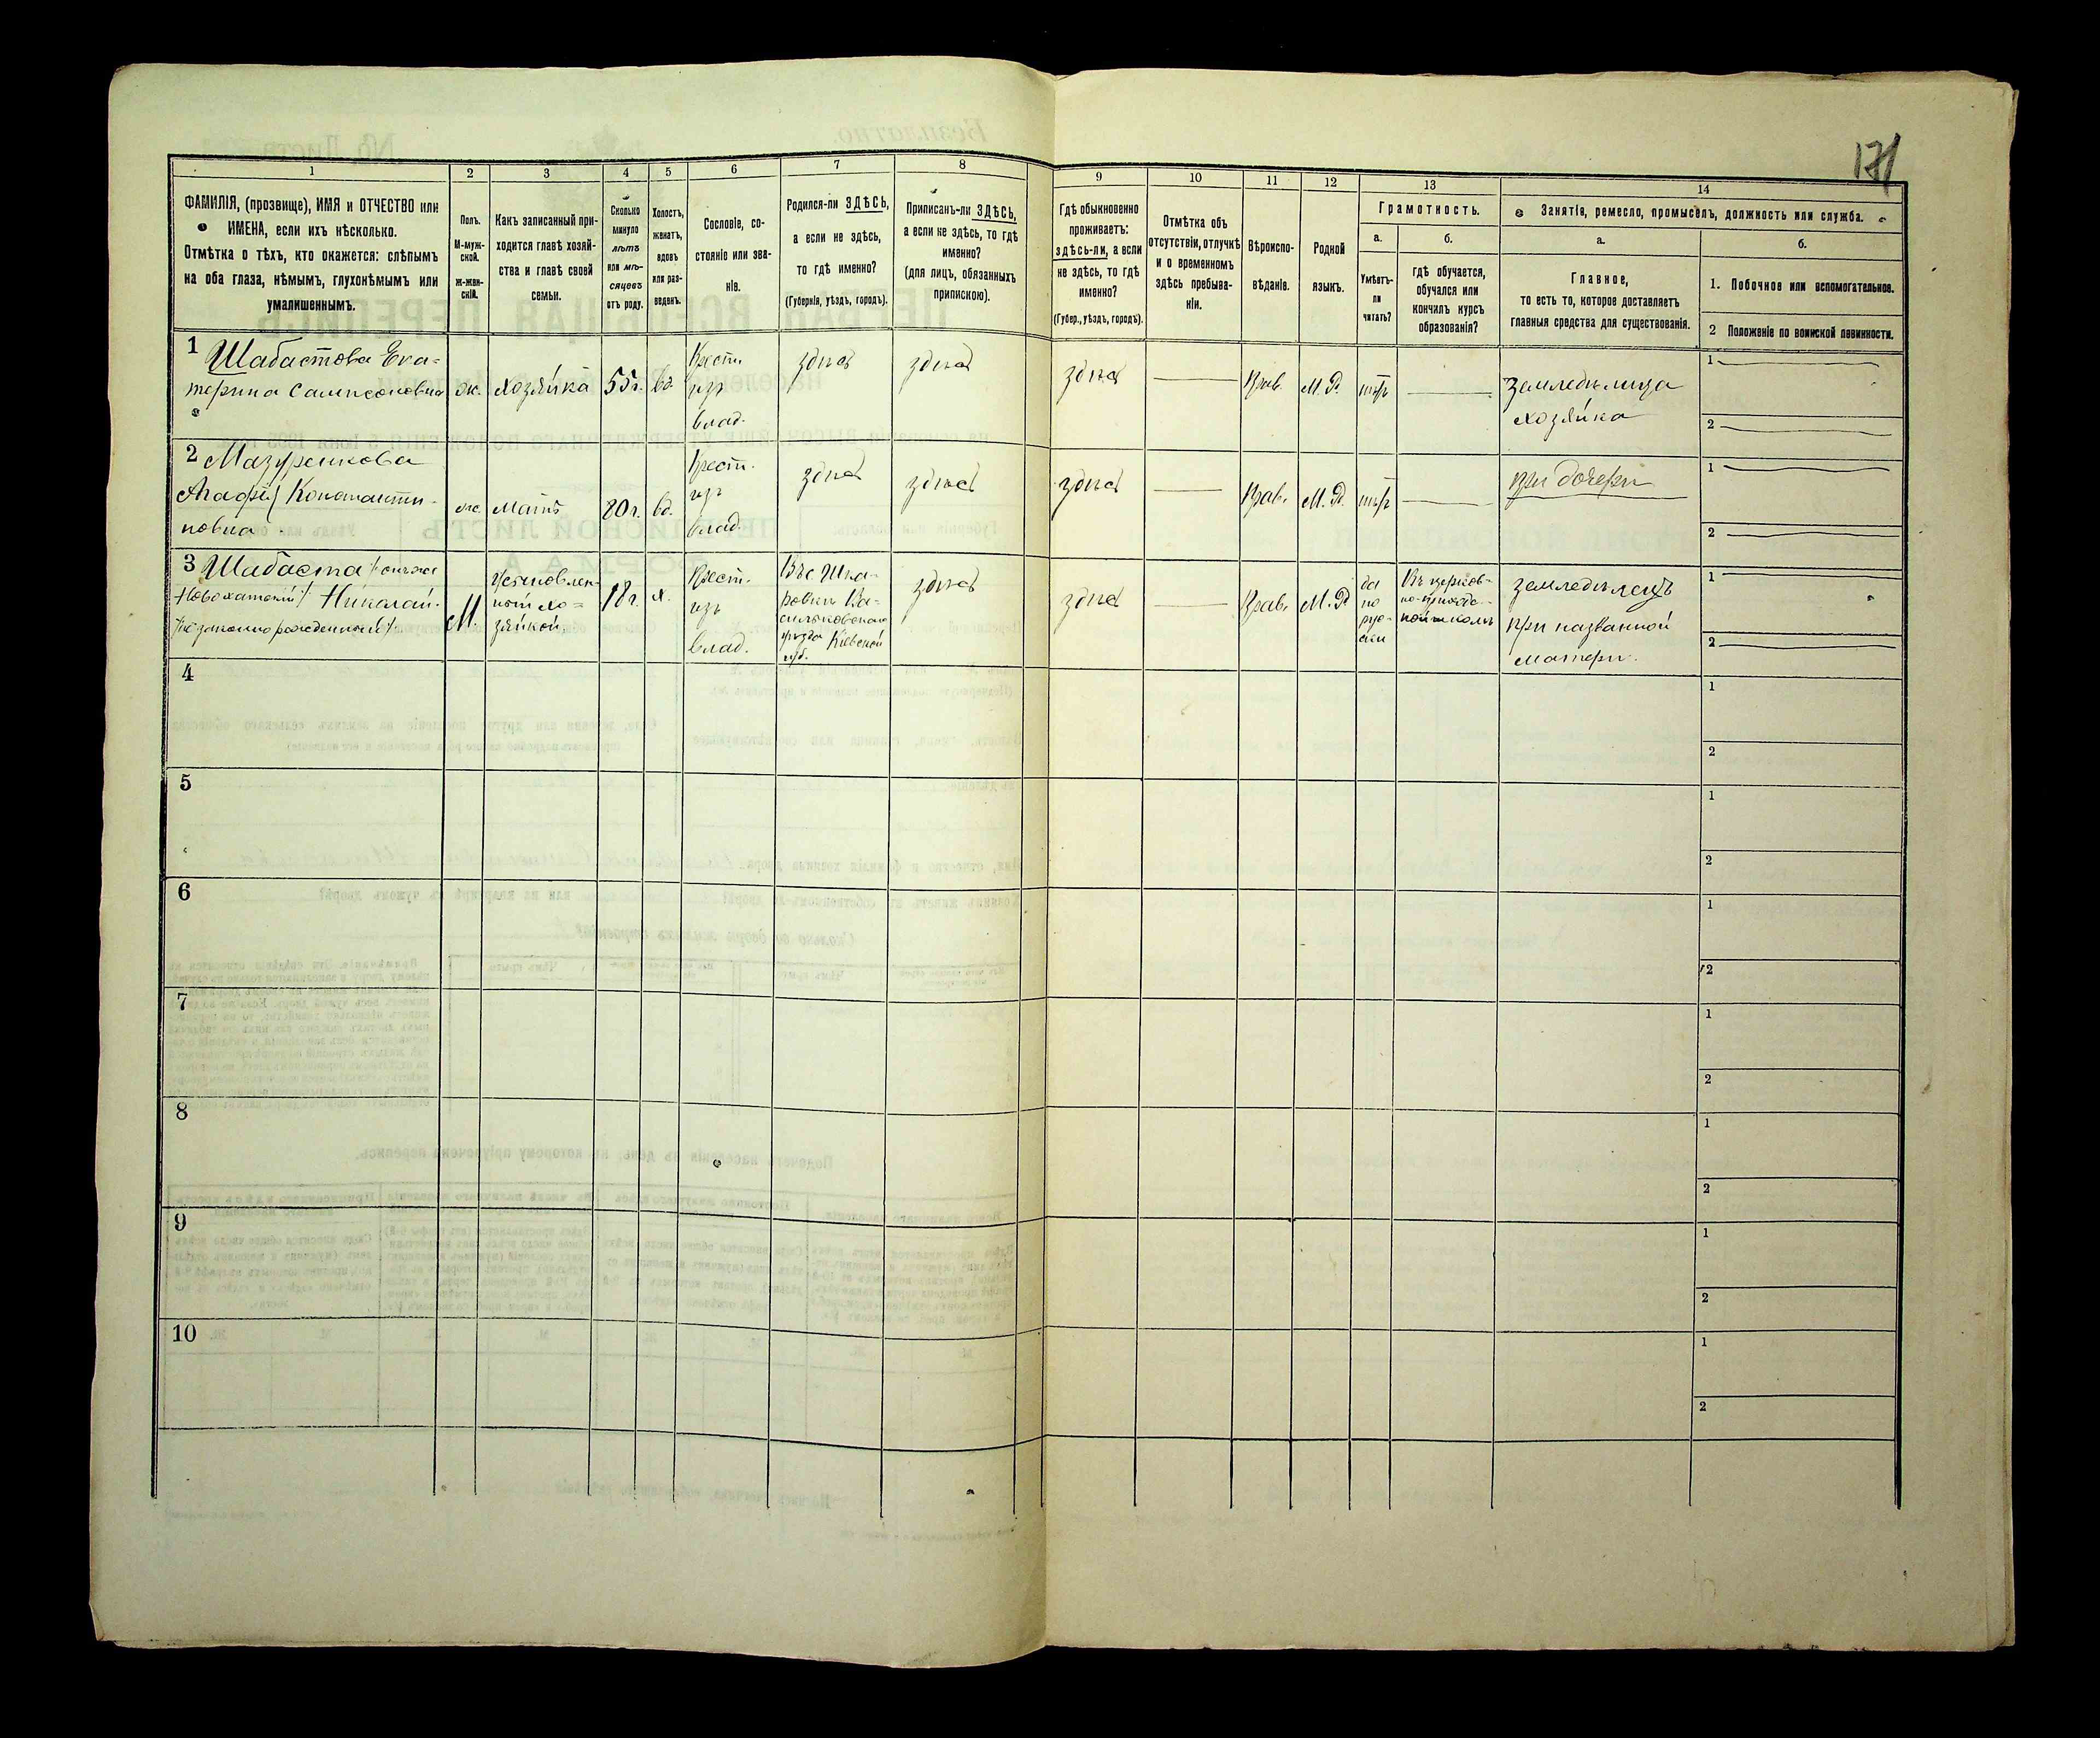 171
1 2 3 4 5 6 7 8 9 10 11 12 13 14
ФАМИЛІЯ, (прозвище), ИМЯ и ОТЧЕСТВО или
ИМЕНА, если ихъ нѣсколько.
Отмѣтка о тѣхъ, кто окажется: слѣпымъ
на оба глаза, нѣмымъ, глухонѣмымъ или
умалишеннымъ.
Полъ.
М-муж-
ской.
ж-жен-
скій.
Какъ записанный при-
ходится главѣ хозяй-
ства и главѣ своей
семьи.
Сколько
минуло
лѣтъ
или мѣ-
сяцевъ
отъ роду.
Холостъ,
женатъ,
вдовъ
или раз-
веденъ.
Сословіе, со-
стояніе или зва-
ніе.
Родился-ли ЗДѢСЬ,
а если не здѣсь,
то гдѣ именно?
(Губернія, уѣздъ, городъ).
Приписанъ-ли ЗДѢСЬ,
а если не здѣсь, то гдѣ
именно?
(для лицъ, обязанныхъ
припискою).
Гдѣ обыкновенно
проживаетъ:
здѣсь-ли, а если
не здѣсь, то гдѣ
именно?
(Губер., уѣздъ, городъ).
Отмѣтка объ
отсутствіи, отлучкѣ
и о временномъ
здѣсь пребыва-
ніи.
Вѣроиспо-
вѣданіе.
Родной
языкъ.
Грамотность.
а.
Умѣетъ-
ли
читать?
б.
гдѣ обучается,
обучался или
кончилъ курсъ
образованія?
Занятія, ремесло, промыселъ, должность или служба.
а.
Главное,
то есть то, которое доставляетъ
главныя средства для существованія.
б.
1. Побочное или вспомогательное.
2 Положеніе по воинской повинности.
1 Шабастова Ека-
терина Сампсоновна
ж.
хозяйка
55 г.
вд.
Крест.
изъ
влад.
здѣсь
здѣсь
здѣсь
Прав.
М. Р.
нѣтъ
земледѣлица
хозяйка
1
2
2 Мазуренкова
Агафія Константи-
новна
ж.
мать
80 г.
вд.
Крест.
изъ
влад.
здѣсь
здѣсь
здѣсь
Прав.
М. Р.
нѣтъ
при дочери
1
2
3 Шабаста
Николай
незаконно рожденный
М.
хо-
зяйкой
18 г.
х.
Крест.
изъ
влад.
Въ с.
Ва-
сильковскаго
уѣзда Кіевской
губ.
здѣсь
здѣсь
Прав.
М. Р.
да
по
рус-
ски
Въ церков-
но-приход-
ской школѣ
земледѣлецъ
при названной
матери.
1
2
4
1
2
5
1
2
6
1
2
7
1
2
8
1
2
9
1
2
10
1
2